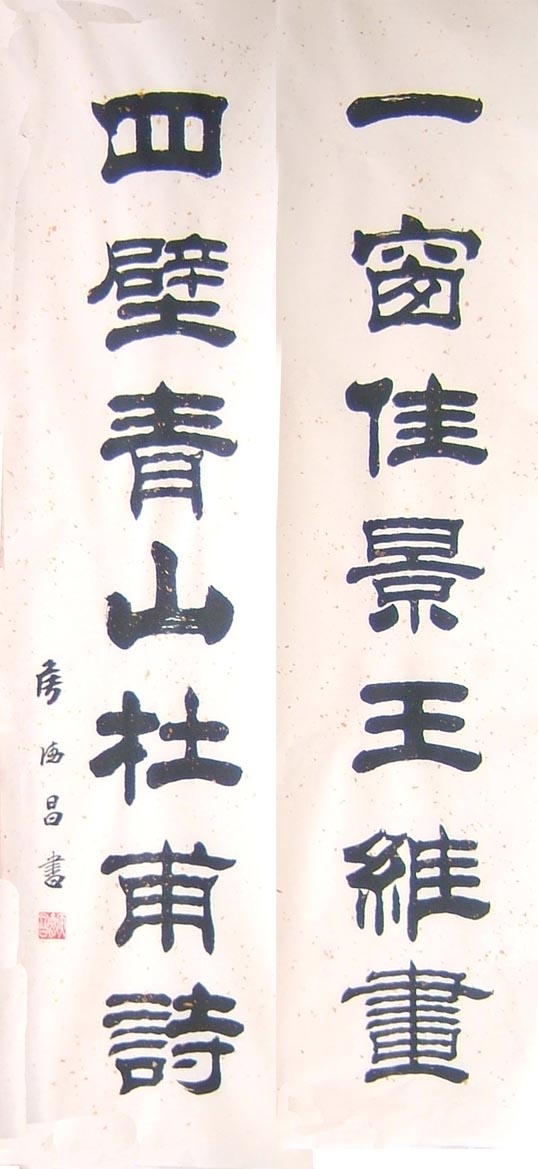 一窗佳景王維畫
四壁青山杜甫詩
房海昌書